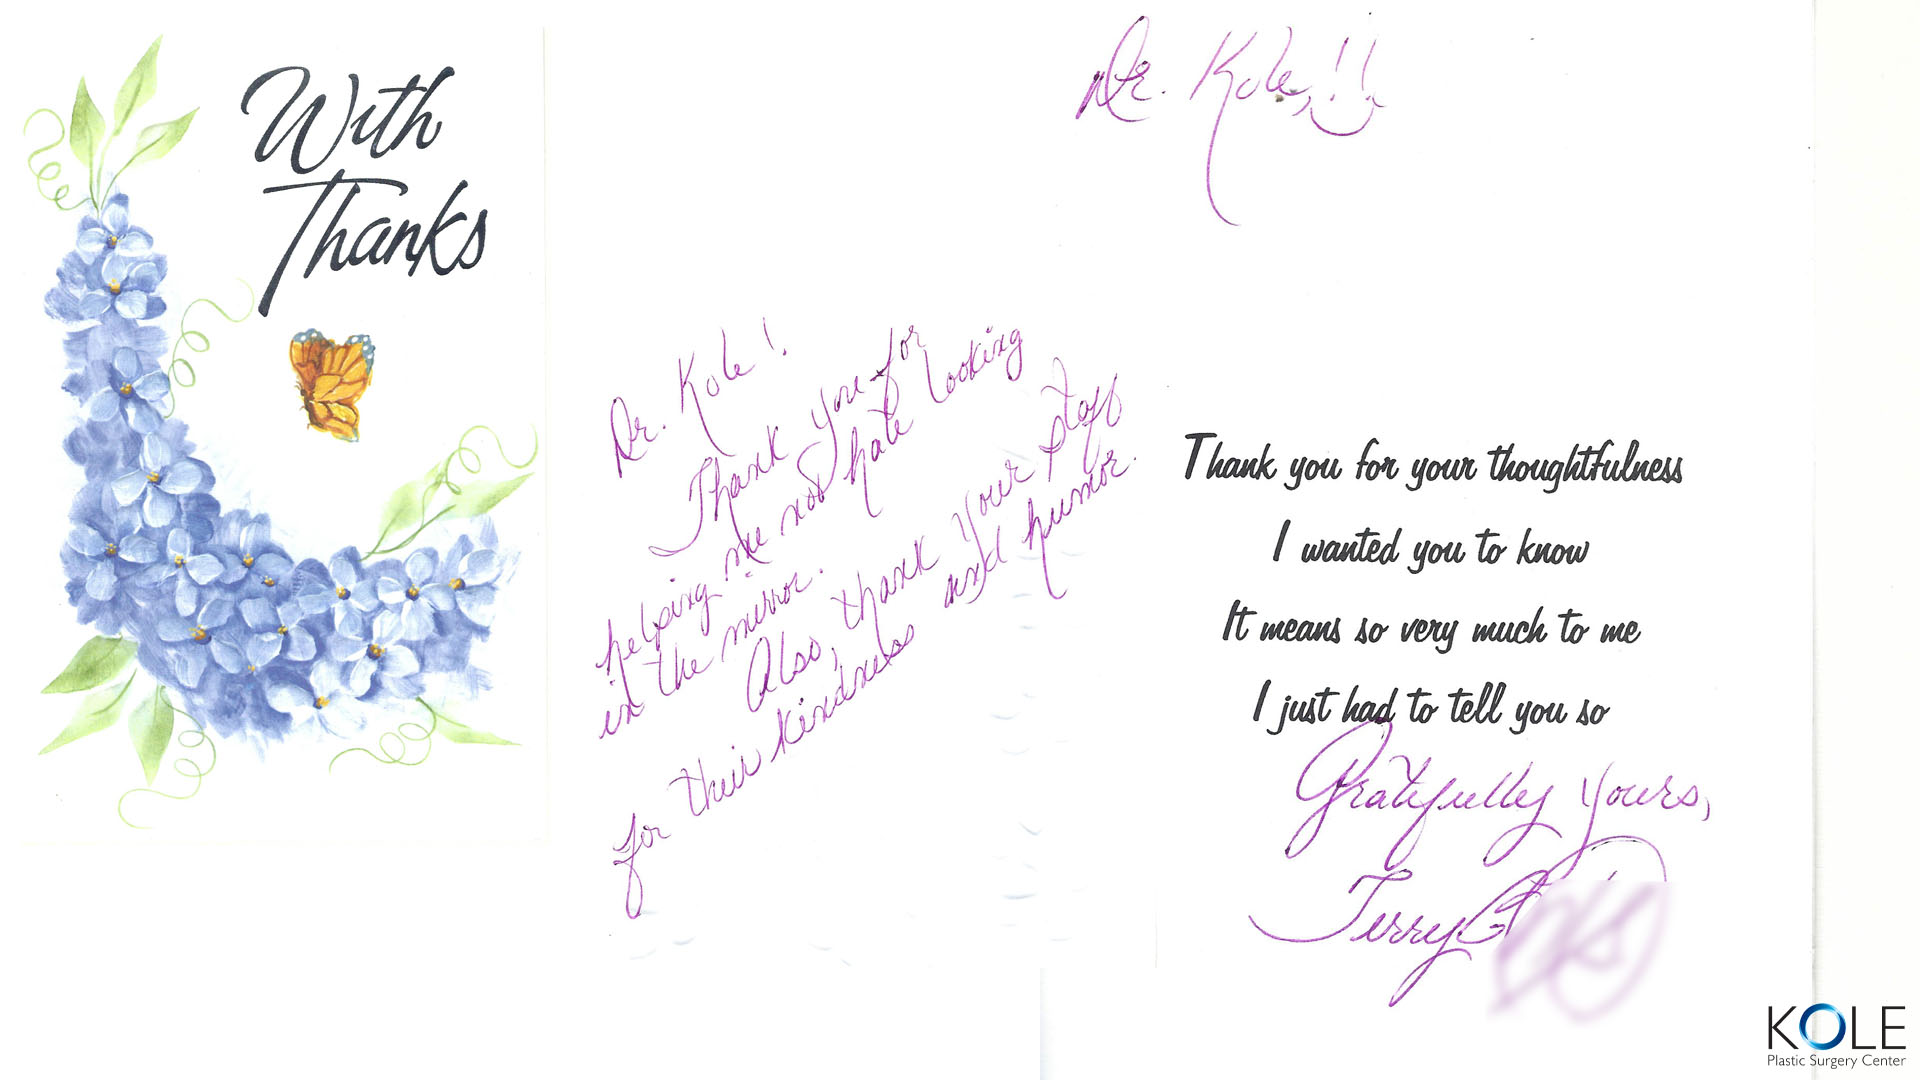 With
Thanks
Dr. Kole!
Thank you for
helping me not hate looking
in the mirror.
Also, thank your staff
for their kindness and humor.
Dr. Kole,!!
Thank you for your thoughtfulness
I wanted you to know
It means so very much to me
I just had to tell you so
Gratefully Yours,
Terry
KOLE
Plastic Surgery Center